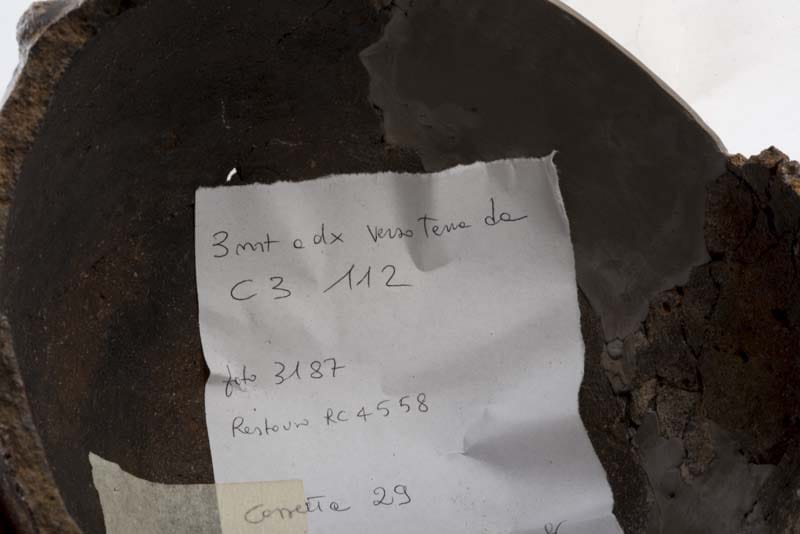 3 mt a dx verso Terra da
C3 112
foto 3187
Restauro RC 4558
Cassetta 29